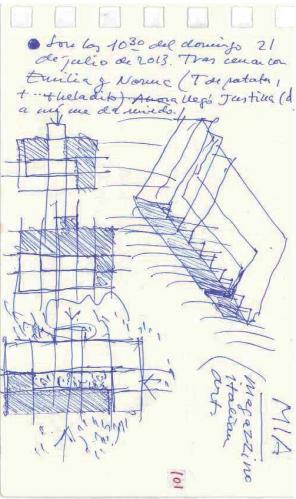 Son las 10³⁰ del domingo 21
de julio de 2013. Tras cenar con
Emilia y Norma (T de patatas,
+ ... + heladito) Ahora llega Justina (
a mí me da miedo!)
MIA
(Magazzino
italian
art)
101